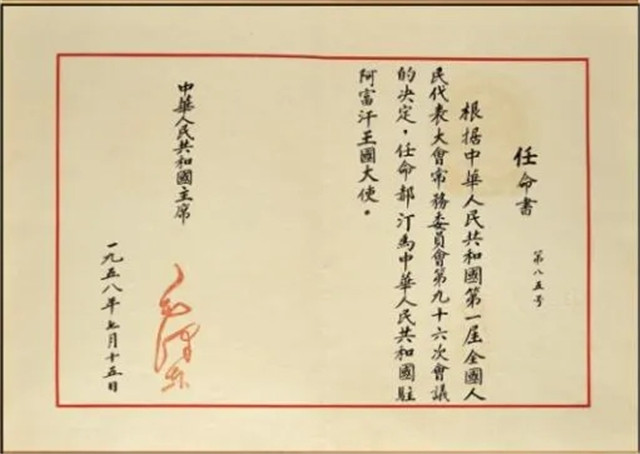 任命書
第八五号
根据中華人民共和國第一届全國人
民代表大會常務委員會第九十六次會議
的決定，任命郝汀為中華人民共和國駐
阿富汗王國大使。
中華人民共和國主席
毛澤东
一九五八年七月十五日